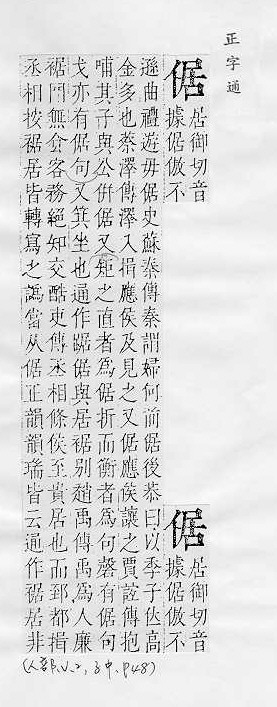 正字通
倨 居御切音
據倨傲不
遜曲禮遊毋倨史蘇秦傳秦謂婦何前倨後恭曰以季子位高
金多也蔡澤傳澤入揖應侯及見之又倨應侯讓之賈誼傳抱
哺其子與公併倨又矩之直者為倨折而衡者為句磬有倨句
戈亦有倨句又箕坐也通作踞倨與居裾別趙禹傳禹為人廉
裾門無食客務絕知交酷吏傳丞相條侯至貴居也而郅都揖
丞相按裾居皆轉寫之譌當从倨正韻韻瑞皆云通作裾居非
倨 居御切音
據倨傲不
(人部、V.2, 子中, P48)